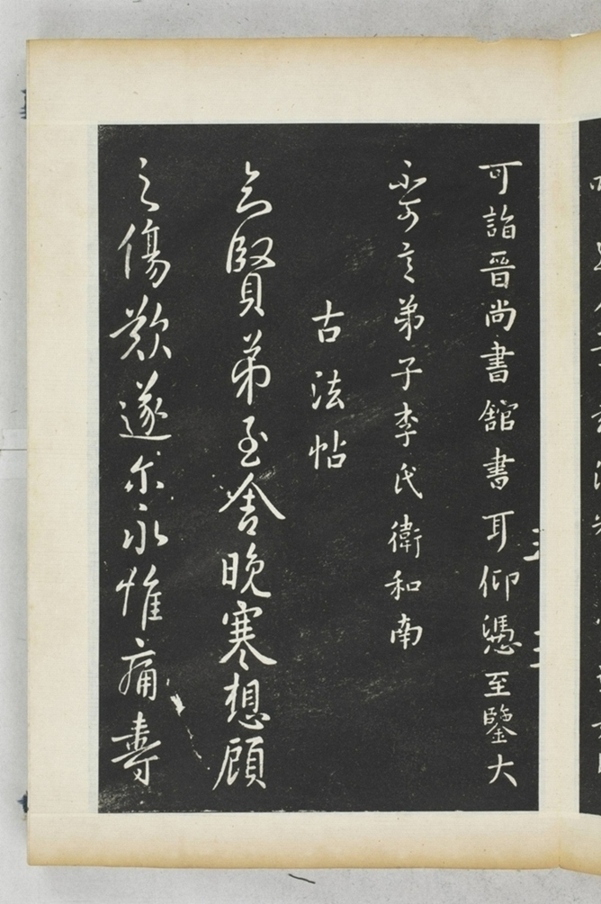 可詣晉尚書館書耳仰憑至鑒大
不可言弟子李氏衛和南
古法帖
賢弟至舍晚寒想顧
之傷歎遂尔永惟痛壽